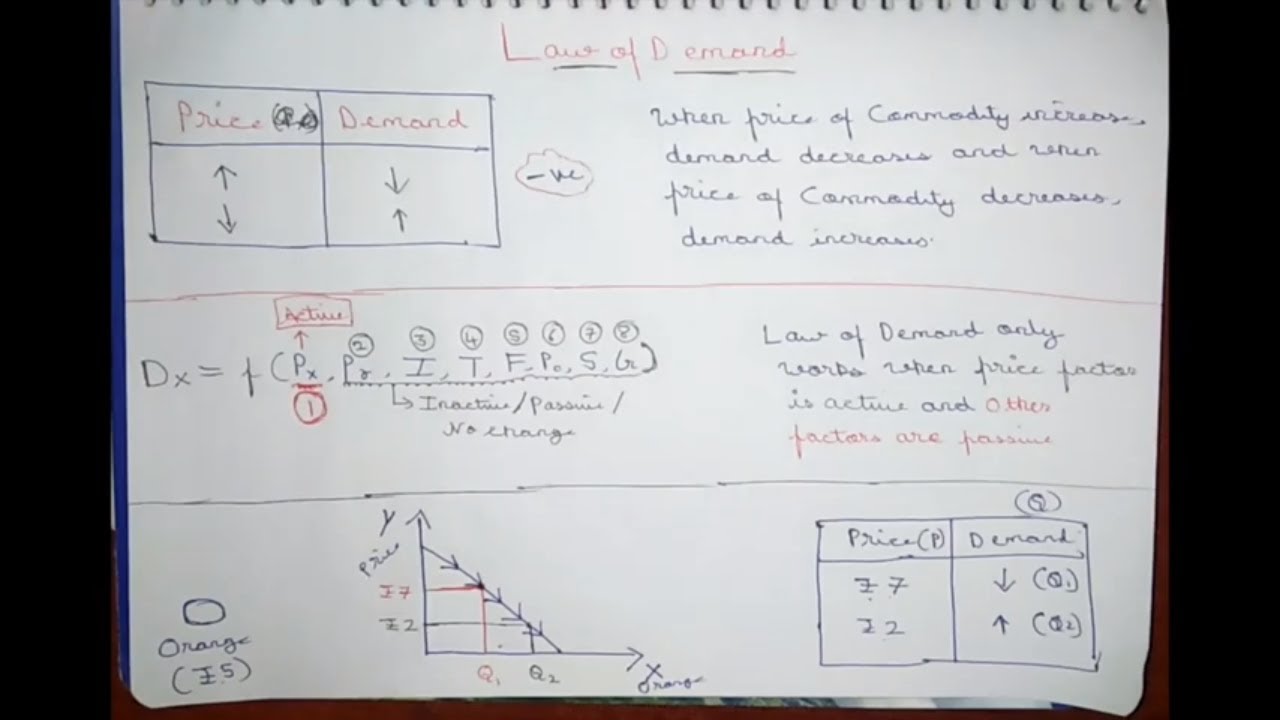 Law of Demand
Price Demand
↑ ↓
↓ ↑
-ve
When price of Commodity increase,
demand decreases and when
price of Commodity decreases,
demand increases.
Active
↑ ② ③ ④ ⑤ ⑥ ⑦ ⑧
Dx = f (Px, Pr, I, T, F, Po, S, G)
①
Inactive/Passive/
No change
Law of Demand only
works when price factor
is active and Other
factors are passive
Y
Price
₹7
₹2
Q1 Q2 X
Orange
Orange
(₹5)
(Q)
Price(P) Demand
₹7 ↓ (Q1)
₹2 ↑ (Q2)